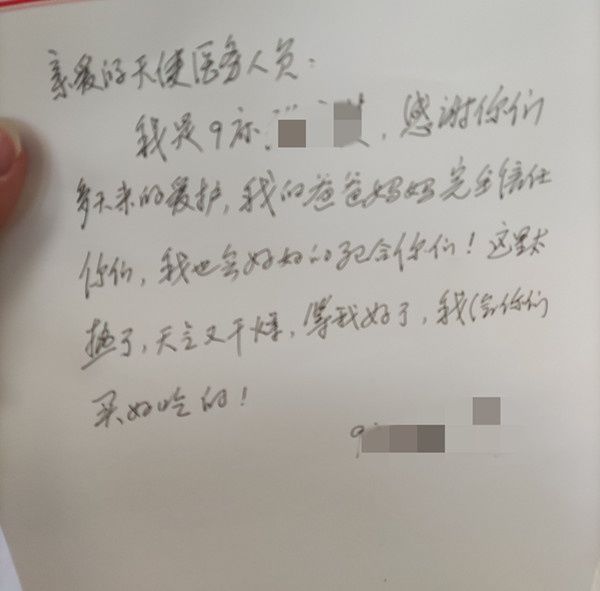 亲爱的天使医务人员：
我是9床，感谢你们
多天来的爱护，我的爸爸妈妈完全信任
你们，我也会好好的配合你们！这里太
热了，天气又干燥，等我好了，我给你们
买好吃的！
9